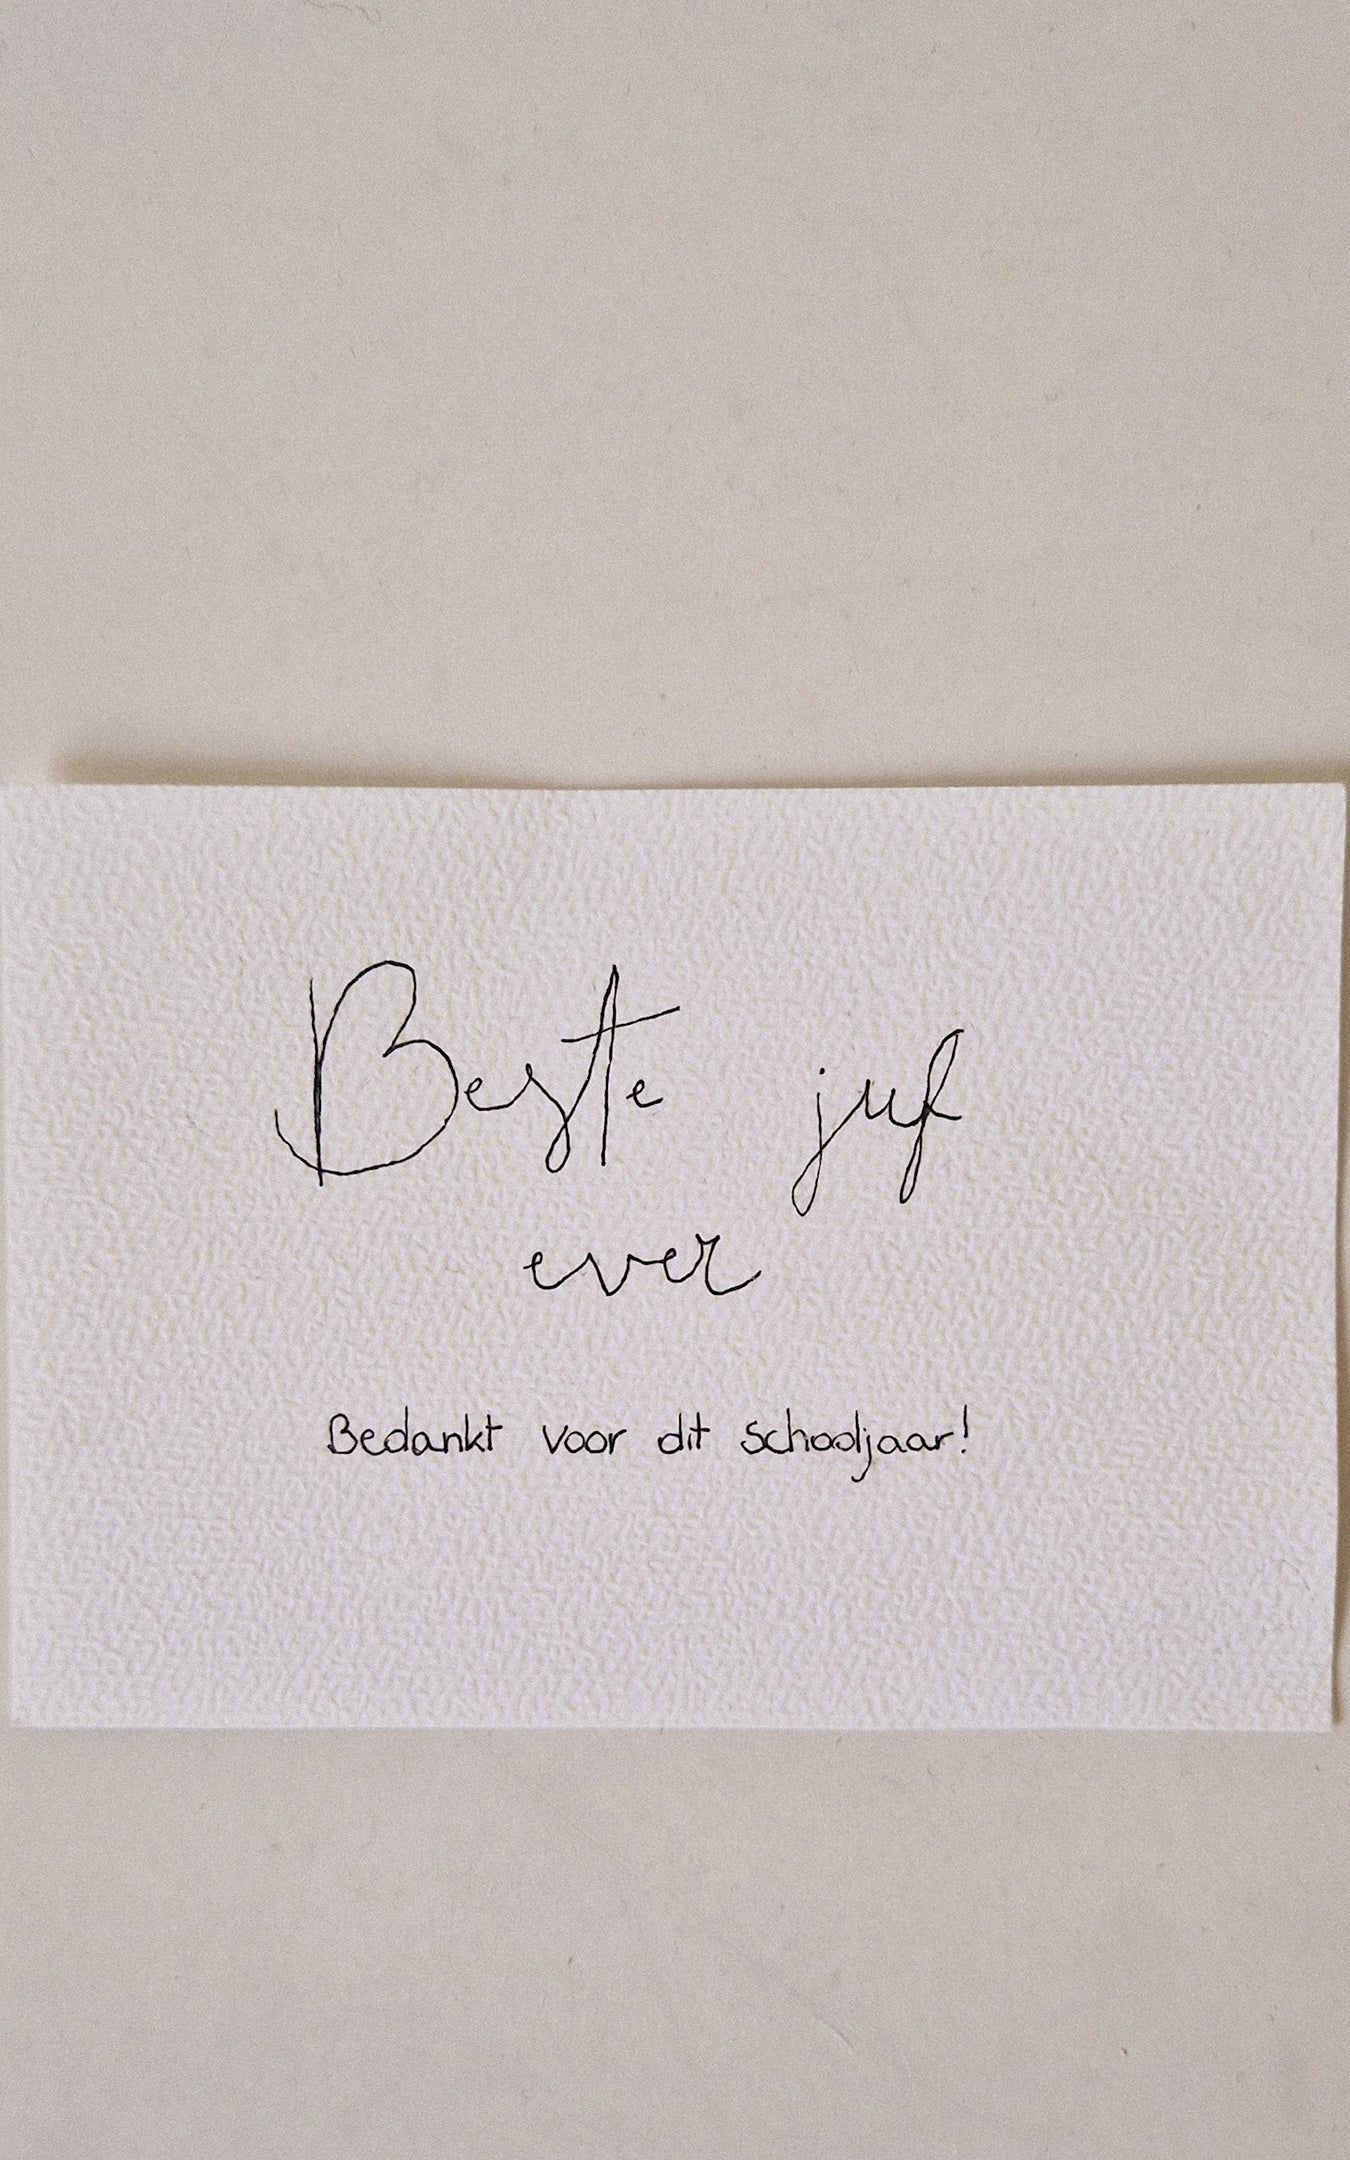 Beste juf
ever
Bedankt voor dit schooljaar!